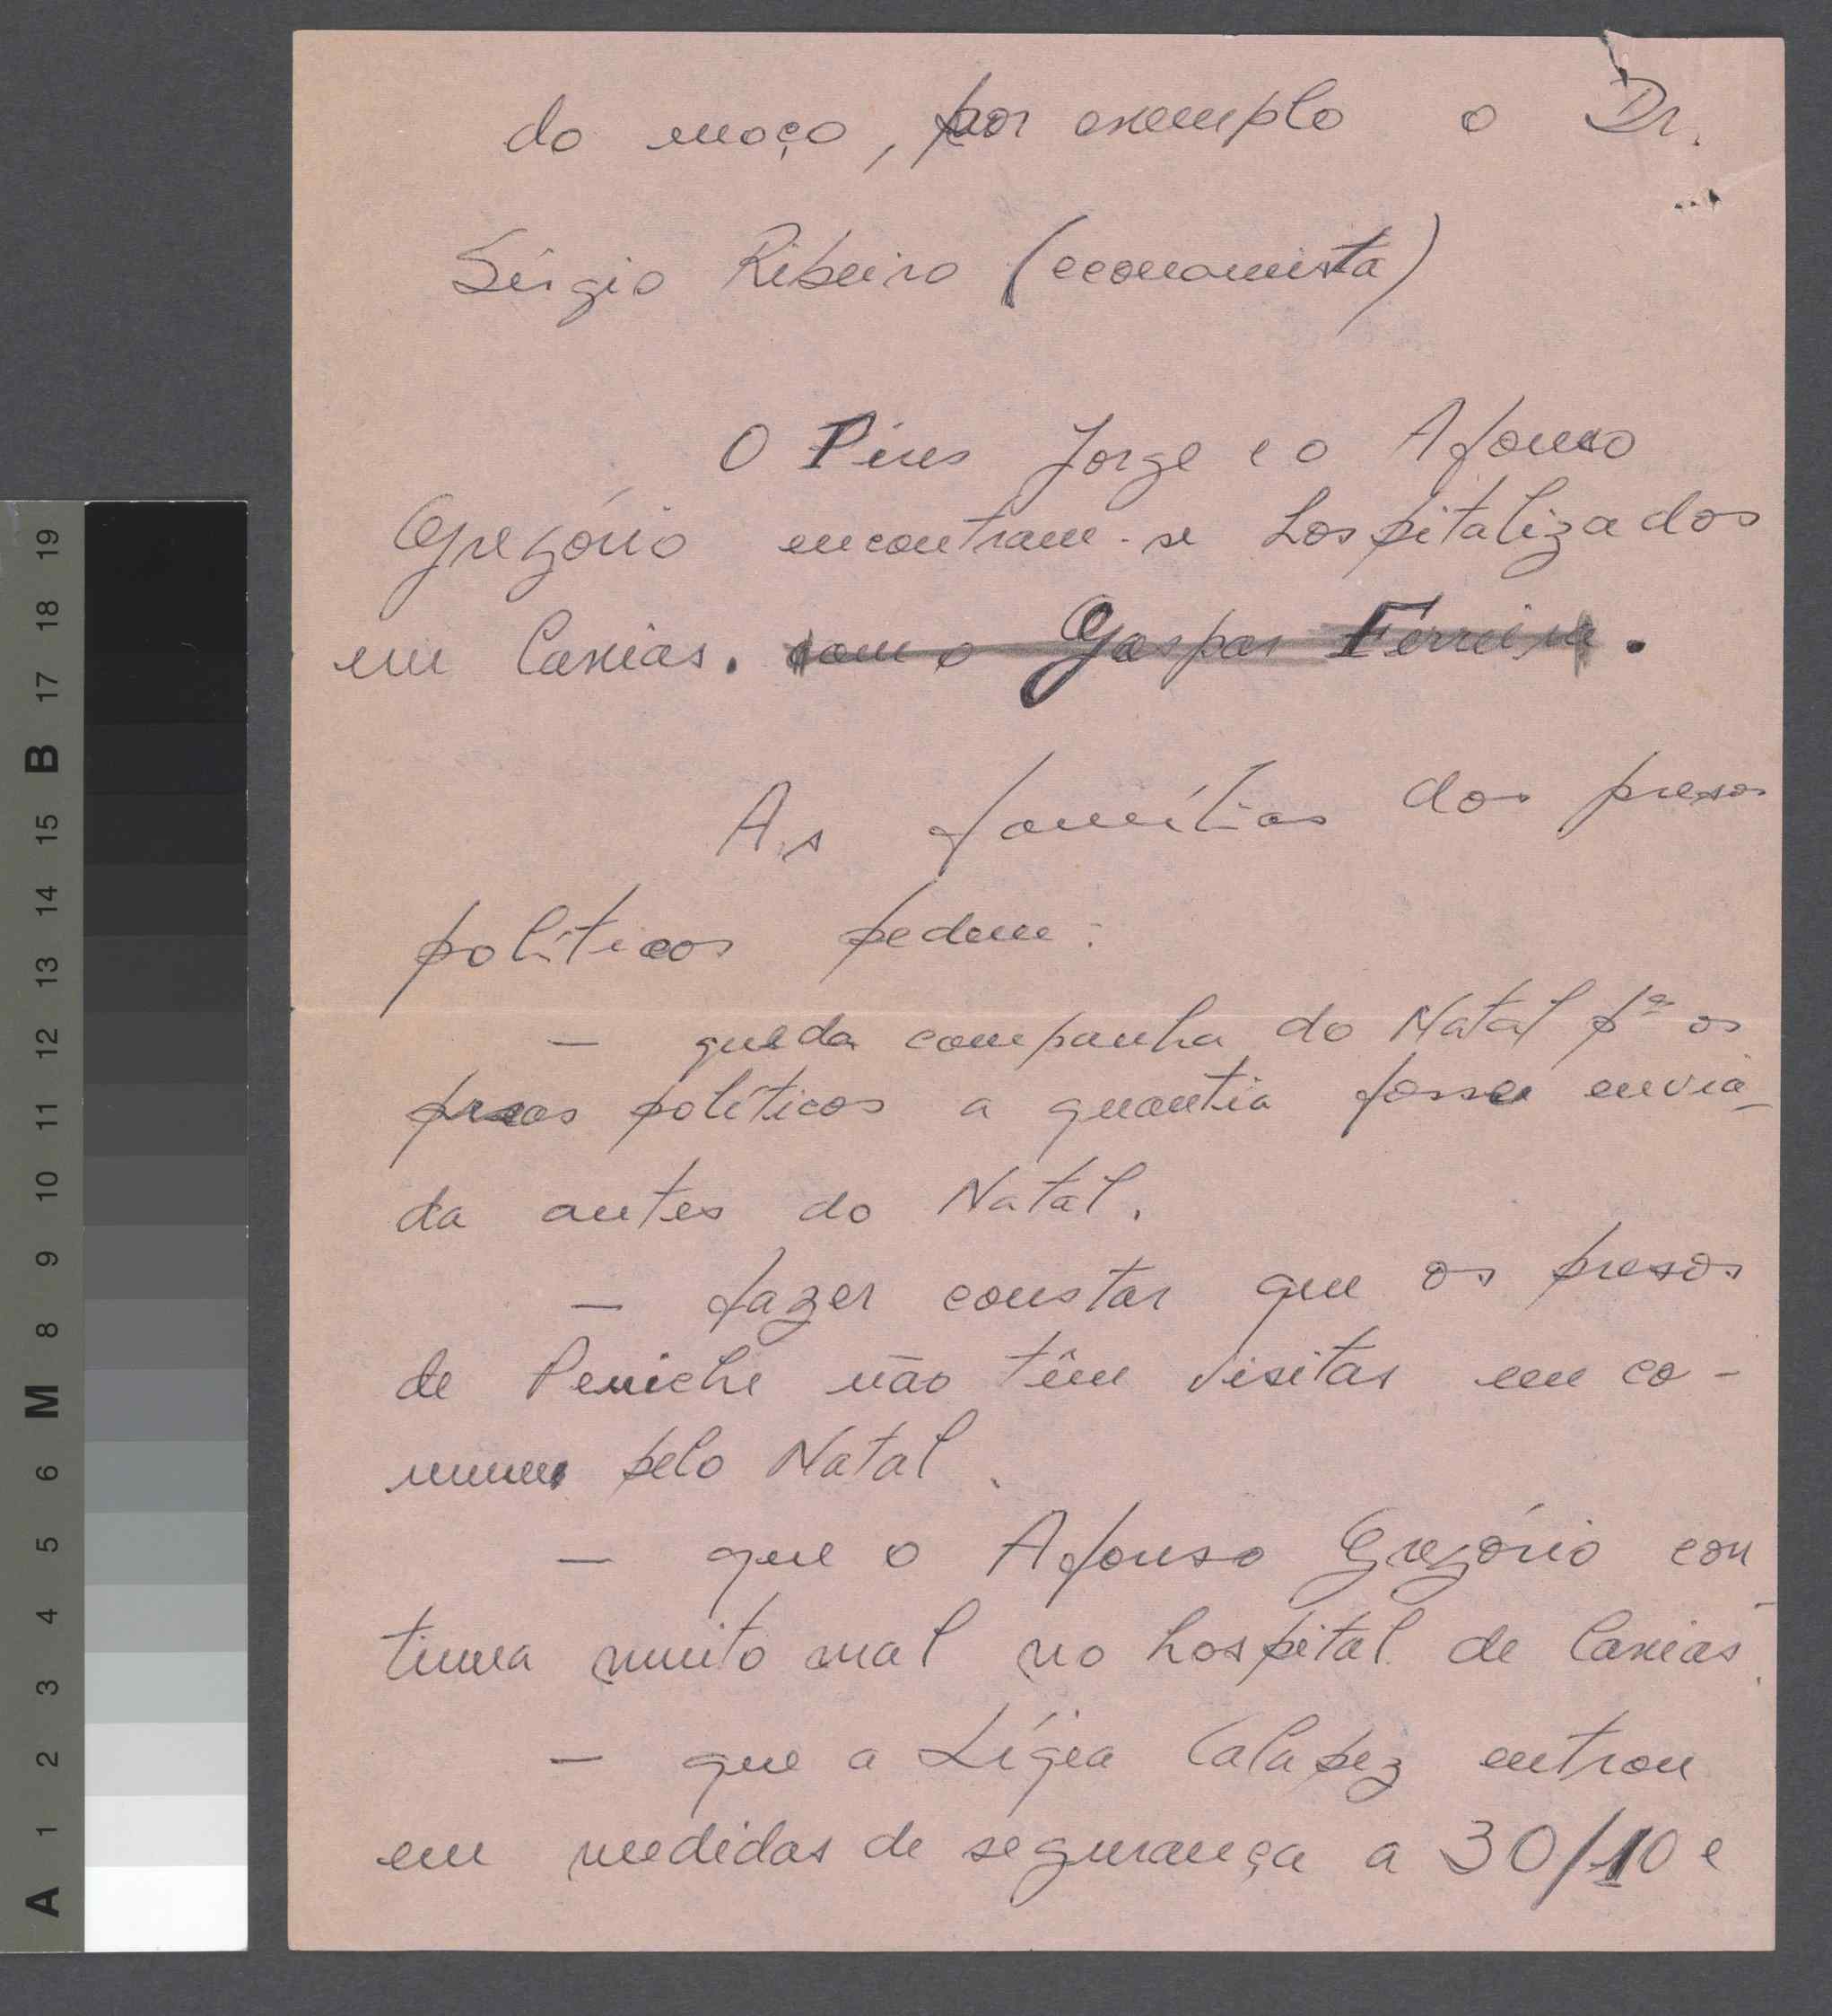 do moço, por exemplo o Dr.
Sérgio Ribeiro (economista)
O Pires Jorge e o Afonso
Gregório encontram-se hospitalizados
em Caxias. com o Gaspar Ferreira.
As famílias dos presos
políticos pedem:
- que da campanha do Natal pª os
presos políticos a quantia fosse envia-
da antes do Natal.
- fazer constar que os presos
de Peniche não têm visitas em co-
mum pelo Natal.
- que o Afonso Gregório con-
tinua muito mal no hospital de Caxias.
- que a Lígia Calapez entrou
em medidas de segurança a 30/10 e
19
18
17
B
15
14
13
12
11
10
9
8
M
6
5
4
3
2
1
A